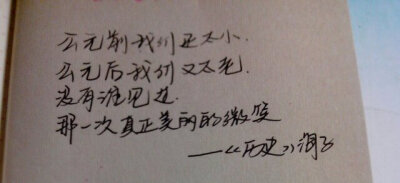 公元前我们还太小.
公元后我们又太老
没有谁见过.
那一次真正美丽的微笑
——《历史》海子